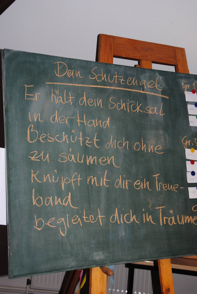 Dein Schutzengel
Er hält dein Schicksal
in der Hand
Beschützt dich ohne
zu säumen
Knüpft mit dir ein Treue-
band
begleitet dich in Träume